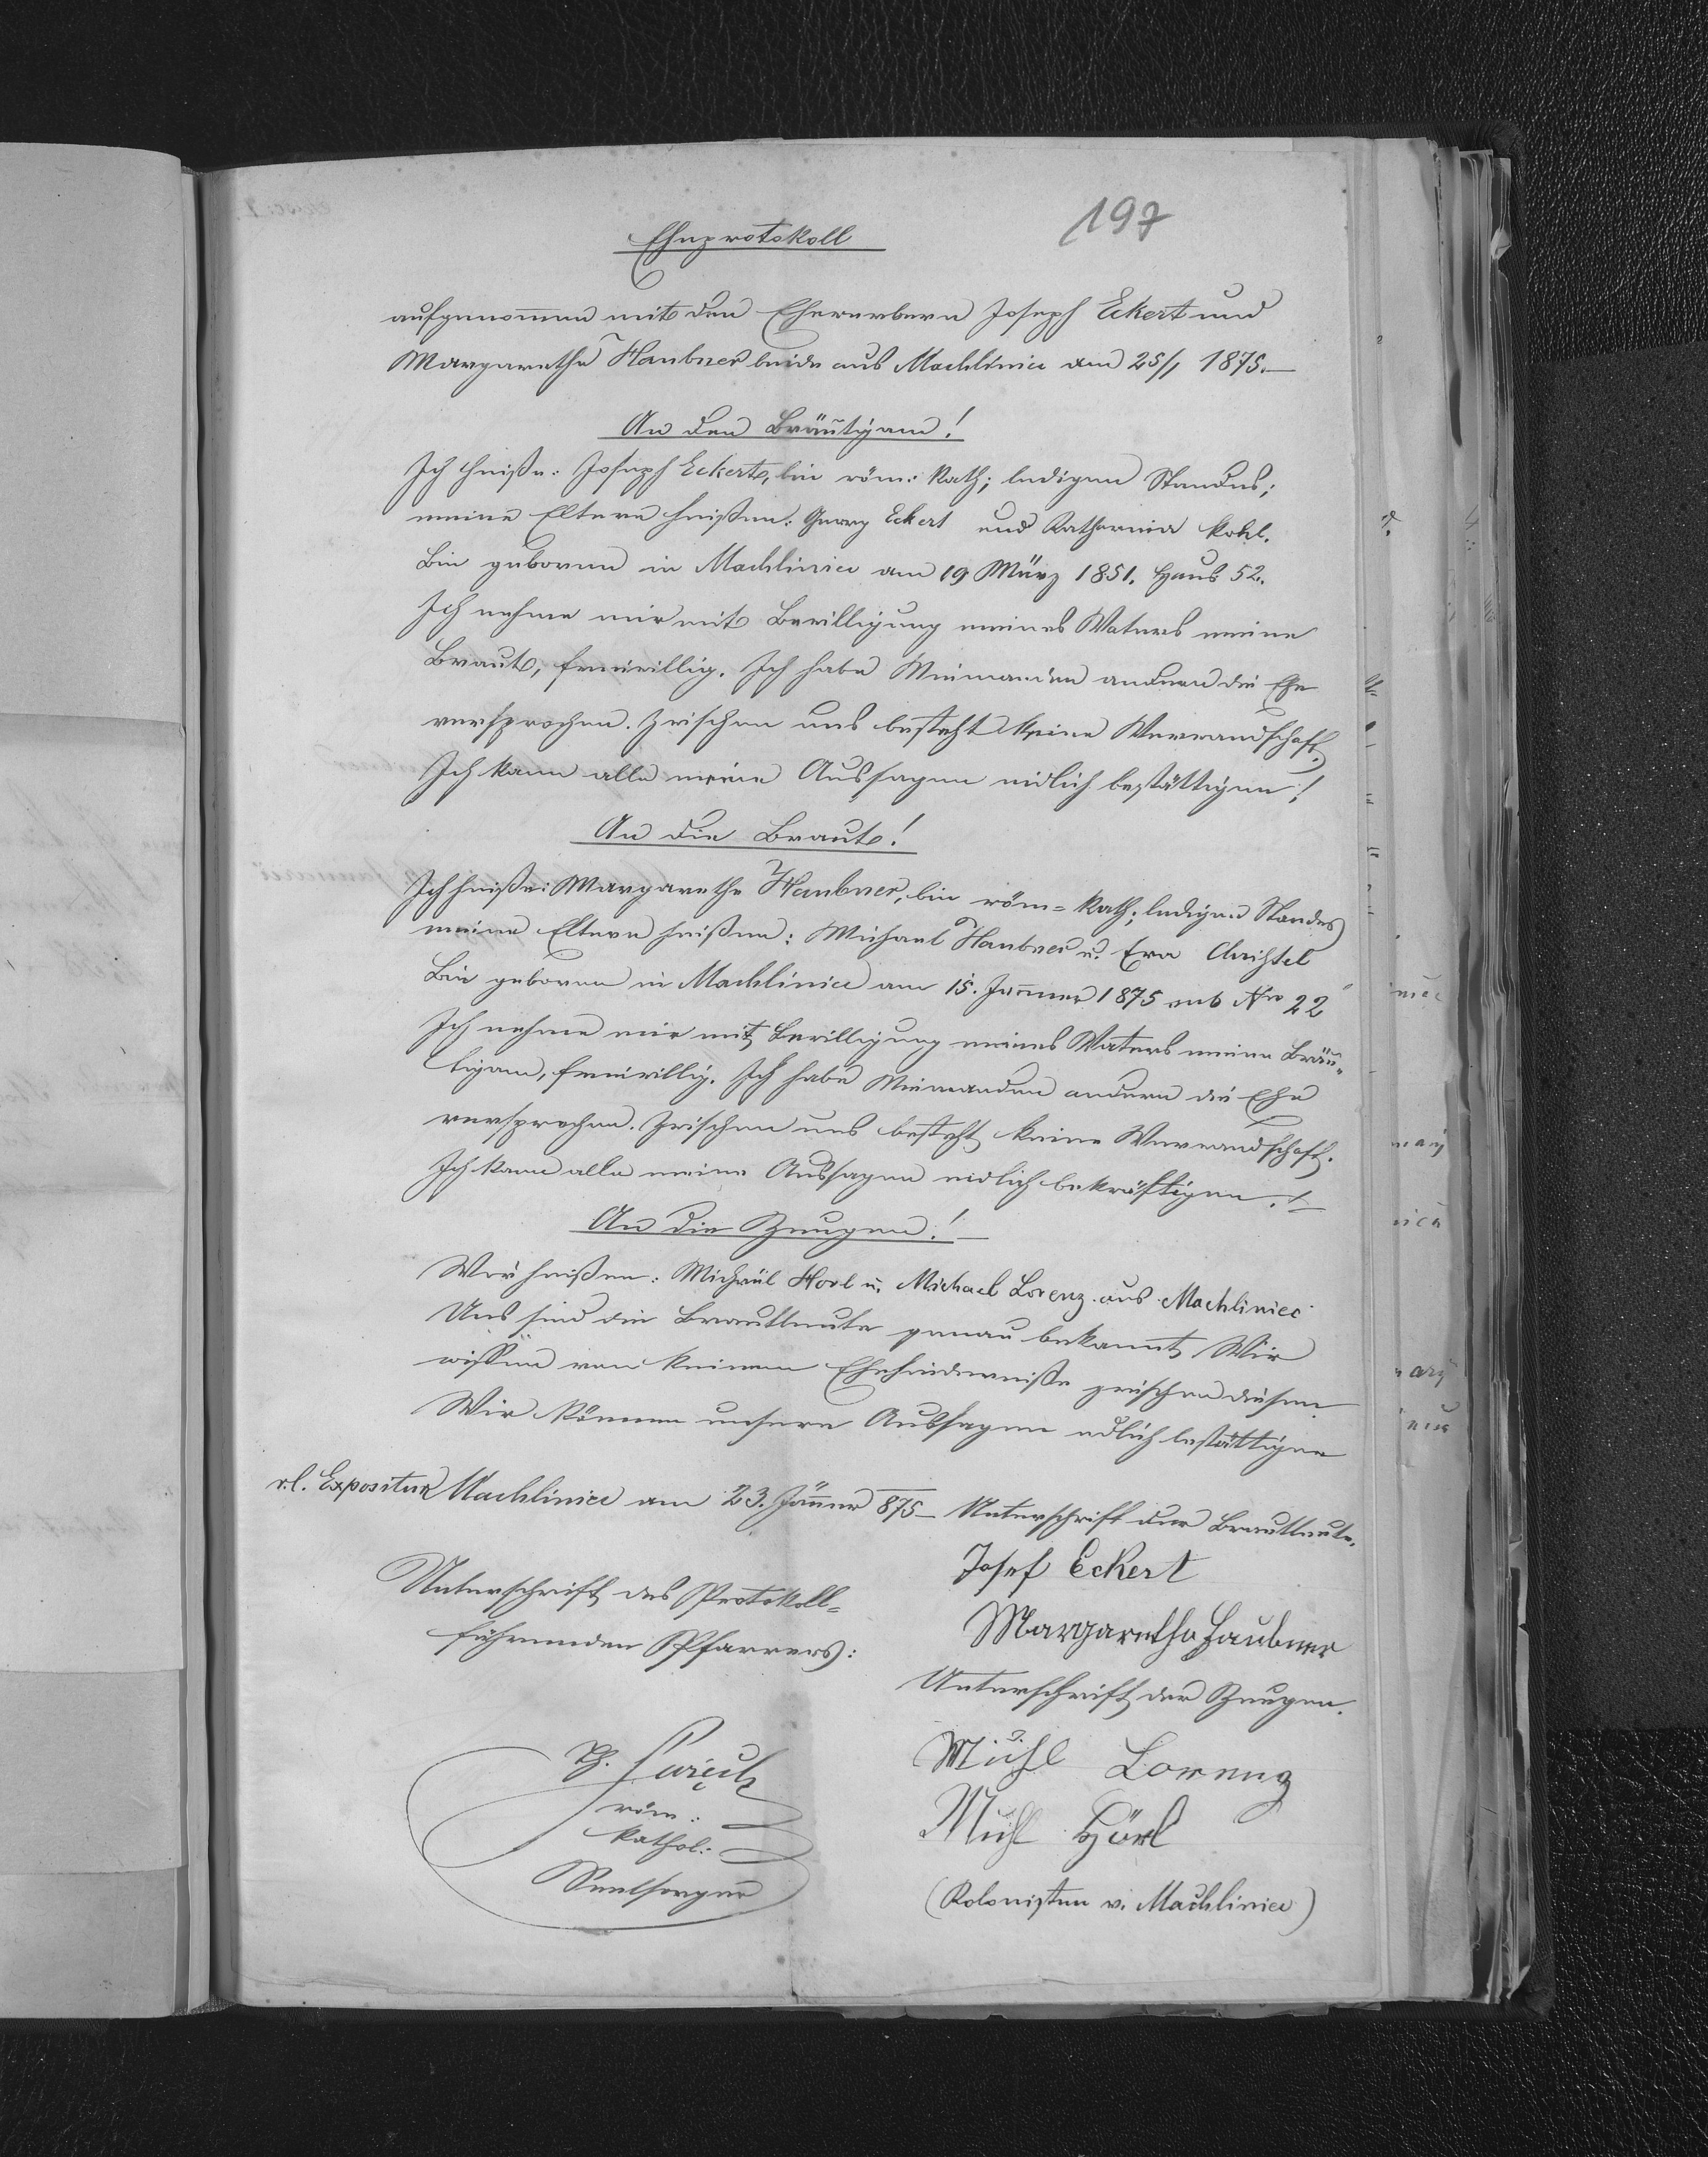 197
Eheprotokoll
aufgenommen mit den Ehewerbern Joseph Eckert und
Margarethe Haubner beide aus Machliniec am 25/1 1875.—
An den Bräutigam!
Ich heiße: Joseph Eckert, bin röm: kath; ledigen Standes;
meine Eltern heißen: Georg Eckert und Katharina Kohl.
Bin geboren in Machliniec am 19 März 1851. Haus 52.
Ich nehme mir mit Bewilligung meines Vaters meine
Braut, freiwillig. Ich habe Niemanden andern die Ehe
versprochen. Zwischen uns besteht keine Verwandschaft.
Ich kann alle meine Aussagen eidlich bestättigen!
An die Braut!
Ich heiße: Margarethe Haubner, bin röm= kath; ledigen Standes
meine Eltern heißen: Michael Haubner u. Eva
Bin geboren in Machliniec am 15. Jänner 1875 sub Nro 22
Ich nehme mir mit Bewilligung meines Vaters meinen Bräu=
tigam, freiwillig. Ich habe Niemanden andern die Ehe
versprochen. Zwischen uns besteht keine Verwandschaft.
Ich kann alle meine Aussagen eidlich bekräftigen!—
An die Zeugen!—
Wir heißen: Michael Horl u. Michael Lorenz aus Machliniec
Uns sind die Brautleute genau bekannt, Wir
wissen von keinem Ehehinderniße zwischen diesen.
Wir können unsere Aussagen edlich bestättigen
r.l. Expositur Machliniec am 23. Jänner 875— Unterschrift der Brautleute.
Josef Eckert
Unterschrift des Protokoll=
Margaretha Haubner
führenden Pfarrers:
Unterschrift der Zeugen.
Michl Lorenz
röm:
Michl Hörl
kathol:
Seelsorger
(Kolonisten v. Machliniec)